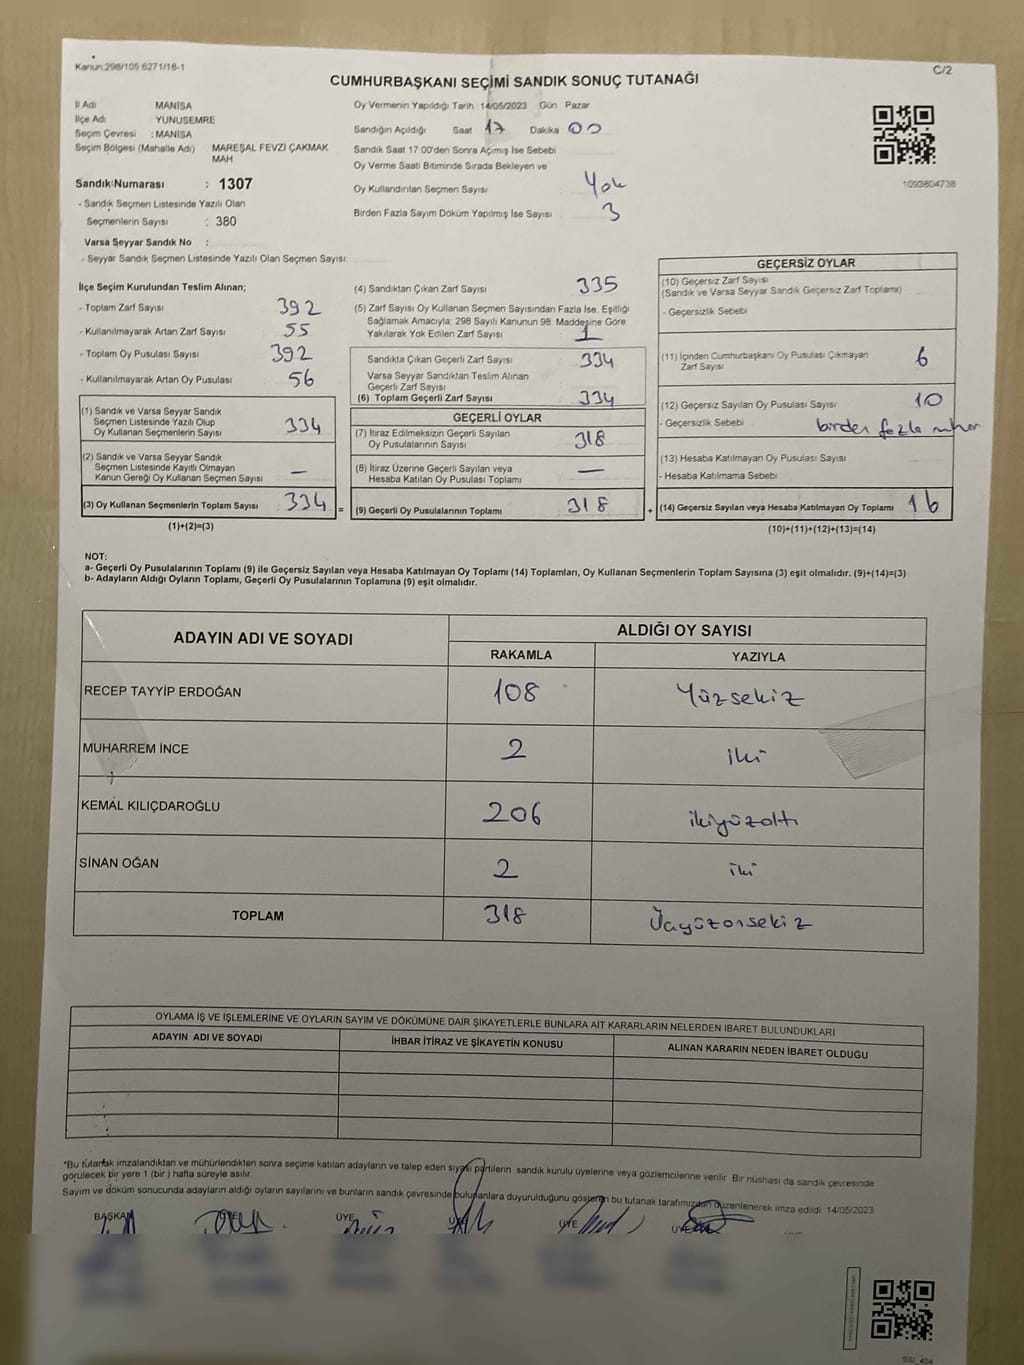 Kanun:298/105:6271/18-1
C/2
CUMHURBAŞKANI SEÇİMİ SANDIK SONUÇ TUTANAĞI
İl Adı MANİSA
İlçe Adı YUNUSEMRE
Seçim Çevresi : MANİSA
Seçim Bölgesi (Mahalle Adı) MAREŞAL FEVZİ ÇAKMAK MAH
Sandık Numarası : 1307
- Sandık Seçmen Listesinde Yazılı Olan
Seçmenlerin Sayısı : 380
Varsa Seyyar Sandık No :
- Seyyar Sandık Seçmen Listesinde Yazılı Olan Seçmen Sayısı:
Oy Vermenin Yapıldığı Tarih 14/05/2023 Gün Pazar
Sandığın Açıldığı Saat 17 Dakika 00
Sandık Saat 17.00'den Sonra Açılmış İse Sebebi
Oy Verme Saati Bitiminde Sırada Bekleyen ve
Oy Kullandırılan Seçmen Sayısı Yok
Birden Fazla Sayım Döküm Yapılmış İse Sayısı 3
1093804738
İlçe Seçim Kurulundan Teslim Alınan;
- Toplam Zarf Sayısı 392
- Kullanılmayarak Artan Zarf Sayısı 55
- Toplam Oy Pusulası Sayısı 392
- Kullanılmayarak Artan Oy Pusulası 56
(1) Sandık ve Varsa Seyyar Sandık
Seçmen Listesinde Yazılı Olup
Oy Kullanan Seçmenlerin Sayısı 334
(2) Sandık ve Varsa Seyyar Sandık
Seçmen Listesinde Kayıtlı Olmayan
Kanun Gereği Oy Kullanan Seçmen Sayısı —
(3) Oy Kullanan Seçmenlerin Toplam Sayısı 334 =
(1)+(2)=(3)
(4) Sandıktan Çıkan Zarf Sayısı 335
(5) Zarf Sayısı Oy Kullanan Seçmen Sayısından Fazla İse, Eşitliği
Sağlamak Amacıyla; 298 Sayılı Kanunun 98. Maddesine Göre
Yakılarak Yok Edilen Zarf Sayısı 1
Sandıkta Çıkan Geçerli Zarf Sayısı 334
Varsa Seyyar Sandıktan Teslim Alınan
Geçerli Zarf Sayısı
(6) Toplam Geçerli Zarf Sayısı 334
GEÇERLİ OYLAR
(7) İtiraz Edilmeksizin Geçerli Sayılan
Oy Pusulalarının Sayısı 318
(8) İtiraz Üzerine Geçerli Sayılan veya
Hesaba Katılan Oy Pusulası Toplamı —
(9) Geçerli Oy Pusulalarının Toplamı 318 +
GEÇERSİZ OYLAR
(10) Geçersiz Zarf Sayısı
(Sandık ve Varsa Seyyar Sandık Geçersiz Zarf Toplamı)
- Geçersizlik Sebebi
(11) İçinden Cumhurbaşkanı Oy Pusulası Çıkmayan
Zarf Sayısı 6
(12) Geçersiz Sayılan Oy Pusulası Sayısı 10
- Geçersizlik Sebebi birden fazla mühür
(13) Hesaba Katılmayan Oy Pusulası Sayısı
- Hesaba Katılmama Sebebi
(14) Geçersiz Sayılan veya Hesaba Katılmayan Oy Toplamı 16
(10)+(11)+(12)+(13)=(14)
NOT:
a- Geçerli Oy Pusulalarının Toplamı (9) ile Geçersiz Sayılan veya Hesaba Katılmayan Oy Toplamı (14) Toplamları, Oy Kullanan Seçmenlerin Toplam Sayısına (3) eşit olmalıdır. (9)+(14)=(3)
b- Adayların Aldığı Oyların Toplamı, Geçerli Oy Pusulalarının Toplamına (9) eşit olmalıdır.
ADAYIN ADI VE SOYADI ALDIĞI OY SAYISI
RAKAMLA YAZIYLA
RECEP TAYYİP ERDOĞAN 108 Yüzsekiz
MUHARREM İNCE 2 iki
KEMAL KILIÇDAROĞLU 206 ikiyüzaltı
SİNAN OĞAN 2 iki
TOPLAM 318 Üçyüzonsekiz
OYLAMA İŞ VE İŞLEMLERİNE VE OYLARIN SAYIM VE DÖKÜMÜNE DAİR ŞİKAYETLERLE BUNLARA AİT KARARLARIN NELERDEN İBARET BULUNDUKLARI
ADAYIN ADI VE SOYADI İHBAR İTİRAZ VE ŞİKAYETİN KONUSU ALINAN KARARIN NEDEN İBARET OLDUĞU
*Bu tutanak imzalandıktan ve mühürlendikten sonra seçime katılan adayların ve talep eden siyasi partilerin sandık kurulu üyelerine veya gözlemcilerine verilir. Bir nüshası da sandık çevresinde
görülecek bir yere 1 (bir ) hafta süreyle asılır.
Sayım ve döküm sonucunda adayların aldığı oyların sayılarını ve bunların sandık çevresinde bulunanlara duyurulduğunu gösteren bu tutanak tarafımızdan düzenlenerek imza edildi. 14/05/2023
BAŞKAN ÜYE ÜYE ÜYE ÜYE